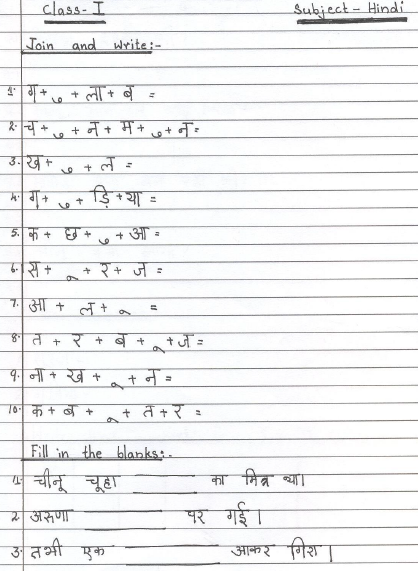 Class-I Subject-Hindi
Join and write:-
1. ग + ु + ला + ब =
2. च + ु + न + म + ु + न =
3. ख + ु + ल =
4. ग + ु + ड़ि + या =
5. क + छ + ु + आ =
6. स + ू + र + ज =
7. आ + ल + ू =
8. त + र + ब + ू + ज =
9. ना + ख + ू + न =
10. क + ब + ू + त + र =
Fill in the blanks:-
1. चीनू चूहा ________ का मित्र था।
2. अरुणा ________ पर गई।
3. तभी एक ________ आकर गिरा।